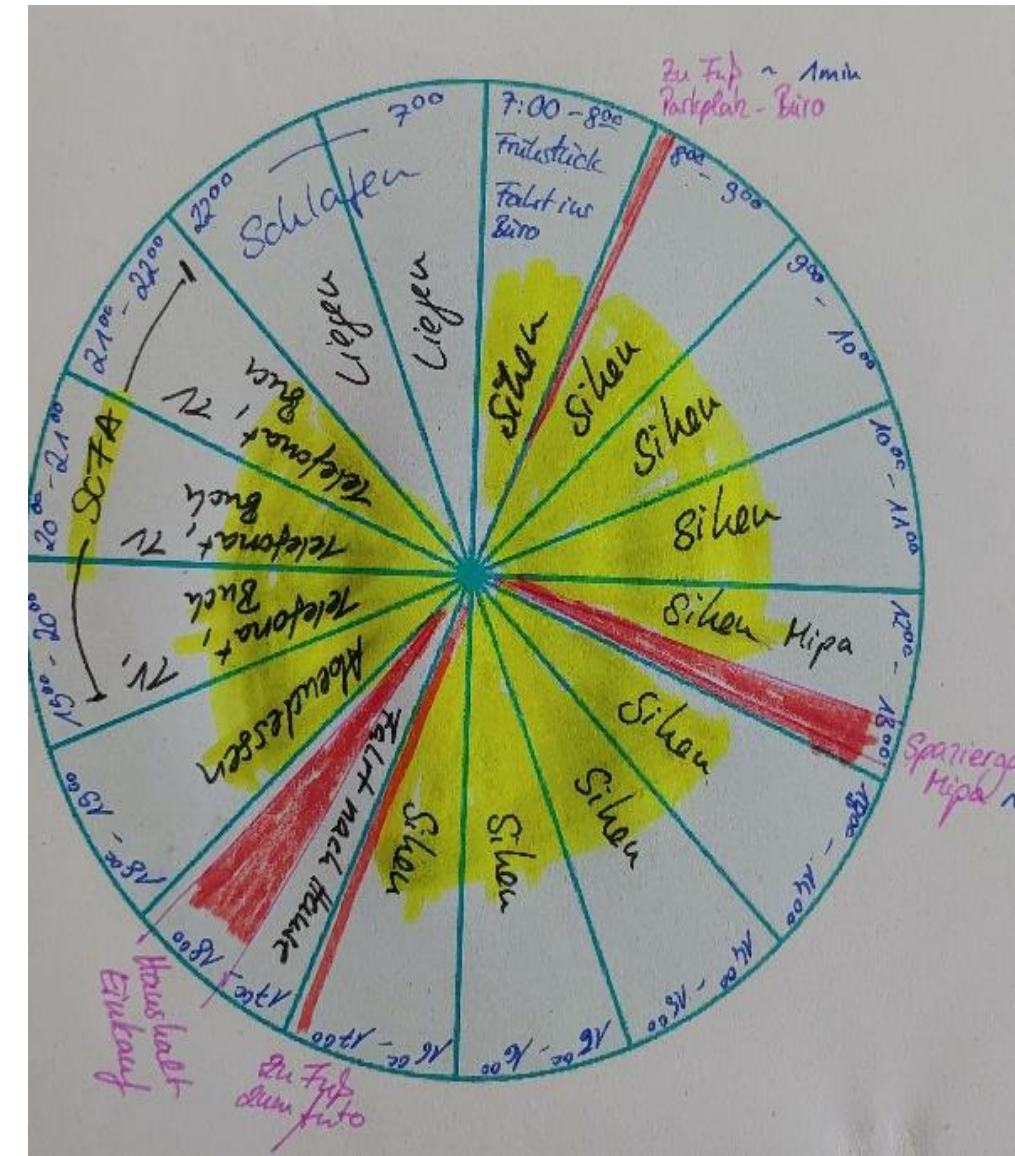 Zu Fuß ~ 1min
Parkplatz - Büro
7:00 - 8:00
Frühstück
Fahrt ins
Büro
Sitzen
8:00 - 9:00
Sitzen
9:00 - 10:00
Sitzen
10:00 - 11:00
Sitzen
12:00 - 13:00
Sitzen Mipa
Mipa
Sitzen
14:00 - 15:00
Sitzen
Sitzen
16:00 - 17:00
Sitzen
Zu Fuß
zum Auto
17:00 - 18:00
Fahrt nach Hause
Haushalt
Einkauf
18:00 - 19:00
Abendessen
19:00 - 20:00
TV,
Telefonat,
Buch
20:00 - 21:00
TV
Telefonat,
Buch
SOFA
21:00 - 22:00
TV
Telefonat,
Buch
22:00 - 7:00
Schlafen
Liegen
Liegen